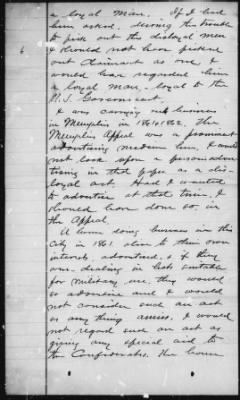 a loyal man. If I had
been asked, during the trouble
to pick out the disloyal men
6 I should not have picked
out Claimant as one, I
would have regarded him
a loyal man, loyal to the
U.S. Government.
I was carrying on business
in Memphis in 1861 & 1862. The
Memphis Appeal was a prominent
advertising medium here, I would
not look upon a person's adver
tising in that paper as a dis-
loyal act. Had I wanted
to advertise at that time I
should have done so, in
the Appeal.
A house doing business in this
City in 1861 alive to their own
interests, advertised, & if they
were dealing in hats suitable
for military use, they would
so advertise and I would
not consider such an act
as any thing amiss, I would
not regard such an act as
giving any special aid to
the Confederates. The house